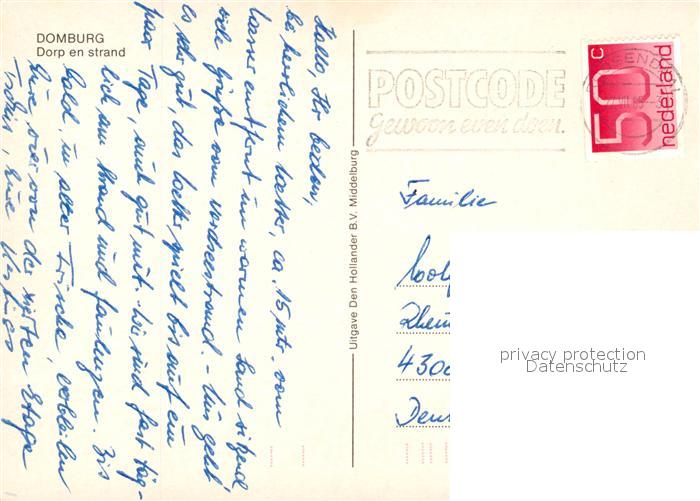 DOMBURG
Dorp en strand
Hallo, Ihr beiden,
bei herrlichem Wetter, ca. 15 mtr. vom
Wasser entfernt im warmen Sand sitzend
viele Grüße vom Nordseestrand. - Uns geht
es sehr gut, das Wetter spielt bis auf ein
paar Tage, auch gut mit. Wir sind fast täg-
lich am Strand und faulenzen. Bis
bald, in alter Frische, verbleiben
Eure vier von der vierten Etage
Tschüs, Eure
Uitgave Den Hollander B.V. Middelburg
POSTCODE
Gewoon even doen.
50 C
nederland
Familie
430
privacy protection
Datenschutz